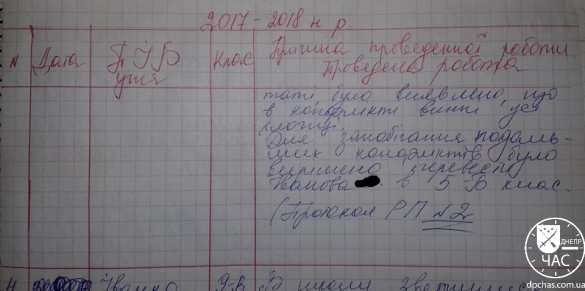 2017 - 2018 н. р.
N Дата П І Б учня Клас Причина проведенної роботи
Проведена робота
таті було виявлено, що
в конфлікті винні усі
хлопці.
Для запобігання подаль-
ших конфліктів було
вирішено перевести
Іванова в 5-Б клас.
(Протокол РП №2
4 Іванко 9-В В школи звернулись
ДНЕПР
ЧАС
dpchas.com.ua